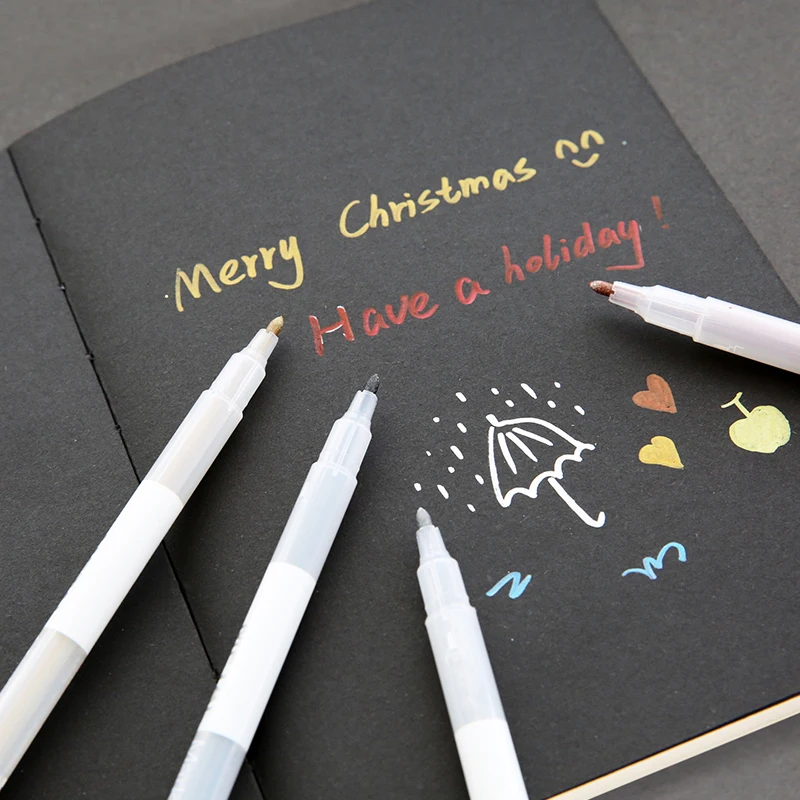 Merry Christmas
Have a holiday!